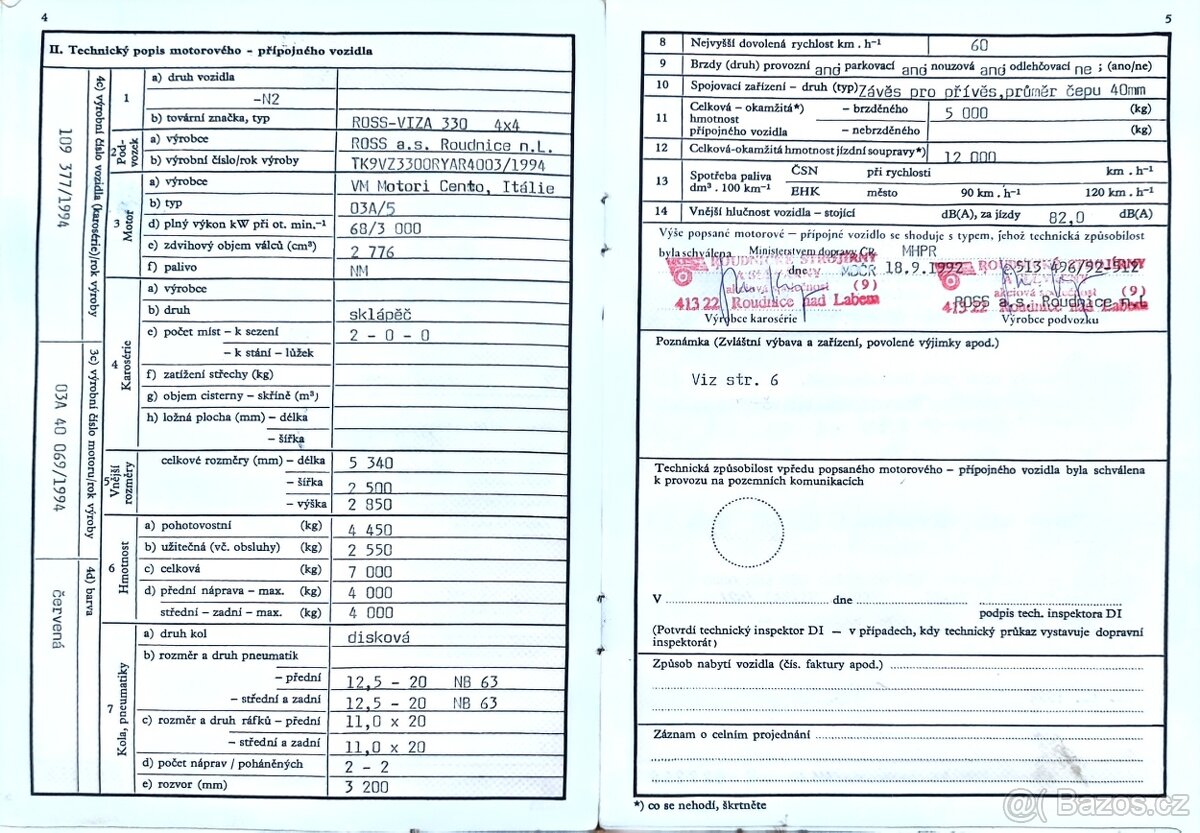 4
II. Technický popis motorového – přípojného vozidla
4c) výrobní číslo vozidla (karosérie)/rok výroby
109 377/1994
3c) výrobní číslo motoru/rok výroby
03A 40 069/1994
4d) barva
červená
1
a) druh vozidla
-N2
b) tovární značka, typ ROSS-VIZA 330 4x4
2 Pod-vozek
a) výrobce ROSS a.s. Roudnice n.L.
b) výrobní číslo/rok výroby TK9VZ3300RYAR4003/1994
3 Motor
a) výrobce VM Motori Cento, Itálie
b) typ 03A/5
d) plný výkon kW při ot. min.⁻¹ 68/3 000
e) zdvihový objem válců (cm³) 2 776
f) palivo NM
4 Karosérie
a) výrobce
b) druh sklápěč
e) počet míst – k sezení 2 - 0 - 0
– k stání – lůžek
f) zatížení střechy (kg)
g) objem cisterny – skříně (m³)
h) ložná plocha (mm) – délka
– šířka
5 Vnější rozměry
celkové rozměry (mm) – délka 5 340
– šířka 2 500
– výška 2 850
6 Hmotnost
a) pohotovostní (kg) 4 450
b) užitečná (vč. obsluhy) (kg) 2 550
c) celková (kg) 7 000
d) přední náprava – max. (kg) 4 000
střední – zadní – max. (kg) 4 000
7 Kola, pneumatiky
a) druh kol disková
b) rozměr a druh pneumatik
– přední 12,5 - 20 NB 63
– střední a zadní 12,5 - 20 NB 63
c) rozměr a druh ráfků – přední 11,0 x 20
– střední a zadní 11,0 x 20
d) počet náprav / poháněných 2 - 2
e) rozvor (mm) 3 200
5
8 Nejvyšší dovolená rychlost km . h⁻¹ 60
9 Brzdy (druh) provozní ano parkovací ano nouzová ano odlehčovací ne ; (ano/ne)
10 Spojovací zařízení – druh (typ) Závěs pro přívěs,průměr čepu 40mm
11 Celková – okamžitá*) – brzděného 5 000 (kg)
hmotnost
přípojného vozidla – nebrzděného (kg)
12 Celková-okamžitá hmotnost jízdní soupravy*) 12 000
13 Spotřeba paliva ČSN při rychlosti km . h⁻¹
dm³ . 100 km⁻¹ EHK město 90 km . h⁻¹ 120 km . h⁻¹
14 Vnější hlučnost vozidla – stojící dB(A), za jízdy 82,0 dB(A)
Výše popsané motorové – přípojné vozidlo se shoduje s typem, jehož technická způsobilost
byla schválena Ministerstvem dopravy ČR MHPR
dne MDČR 18.9.1992
ROUDNICKÉ STROJÍRNY
akciová společnost (9)
413 22 Roudnice nad Labem
ROUDNICKÉ STROJÍRNY
akciová společnost (9)
413 22 Roudnice nad Labem
ROSS a.s. Roudnice n.L
Výrobce karosérie
Výrobce podvozku
Poznámka (Zvláštní výbava a zařízení, povolené výjimky apod.)
Viz str. 6
Technická způsobilost vpředu popsaného motorového – přípojného vozidla byla schválena
k provozu na pozemních komunikacích
V dne
podpis tech. inspektora DI
(Potvrdí technický inspektor DI – v případech, kdy technický průkaz vystavuje dopravní
inspektorát)
Způsob nabytí vozidla (čís. faktury apod.)
Záznam o celním projednání
*) co se nehodí, škrtněte
Bazos.cz